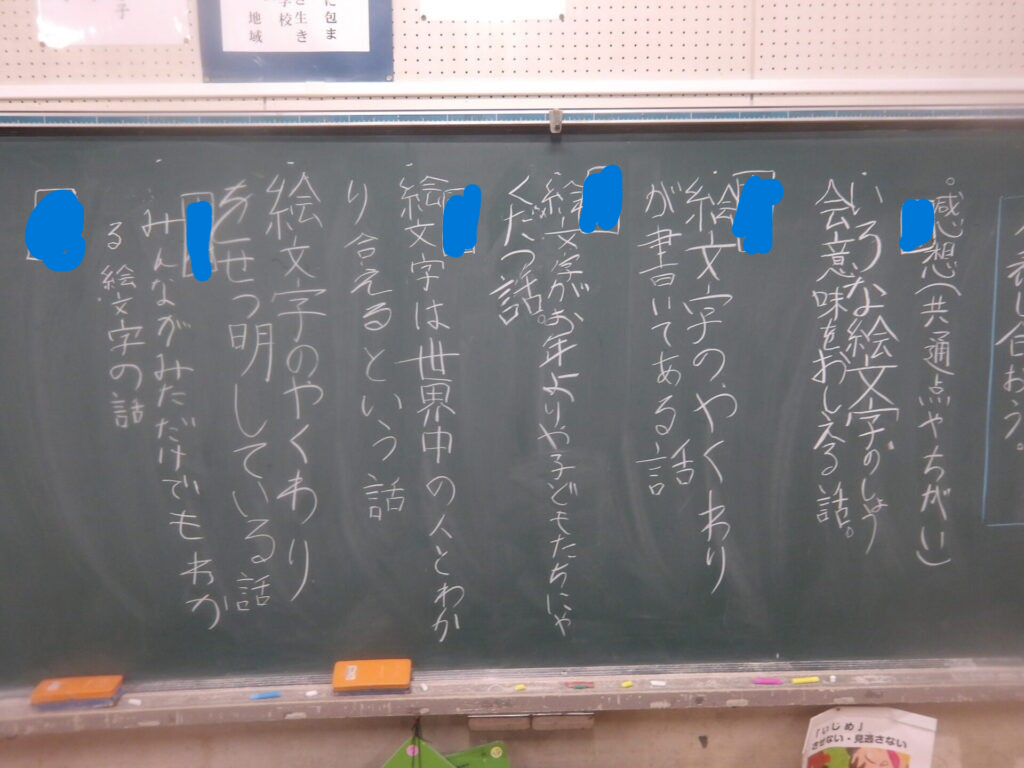 子
に包ま
き生き
学校
地域
表し合おう。
。感想(共通点やちがい)
いろな絵文字のしょう
会意味をおしえる話。
絵文字の、やくわり
が書いてある話
絵文字がお年よりや子どもたちにや
くだつ話。
絵文字は世界中の人とわか
り合えるという話
絵文字のやくわり
をせつ明している話
みんながみだけでもわか
る絵文字の話
「いじめ」
させない・見逃さない